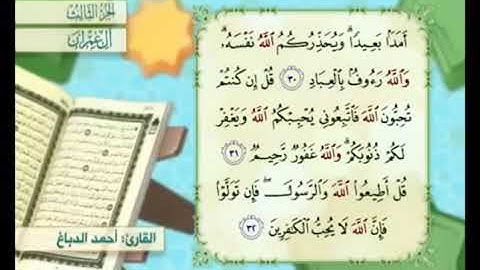 الجزء الثالث
آل عمران
أَمَدًۢا بَعِيدًاۗ وَيُحَذِّرُكُمُ ٱللَّهُ نَفْسَهُۥۗ
وَٱللَّهُ رَءُوفُۢ بِٱلْعِبَادِ ٣٠ قُلْ إِن كُنتُمْ
تُحِبُّونَ ٱللَّهَ فَٱتَّبِعُونِي يُحْبِبْكُمُ ٱللَّهُ وَيَغْفِرْ
لَكُمْ ذُنُوبَكُمْۗ وَٱللَّهُ غَفُورٌ رَّحِيمٌ ٣١
قُلْ أَطِيعُوا۟ ٱللَّهَ وَٱلرَّسُولَۖ فَإِن تَوَلَّوْا۟
فَإِنَّ ٱللَّهَ لَا يُحِبُّ ٱلْكَٰفِرِينَ ٣٢
القارئ: أحمد الدباغ